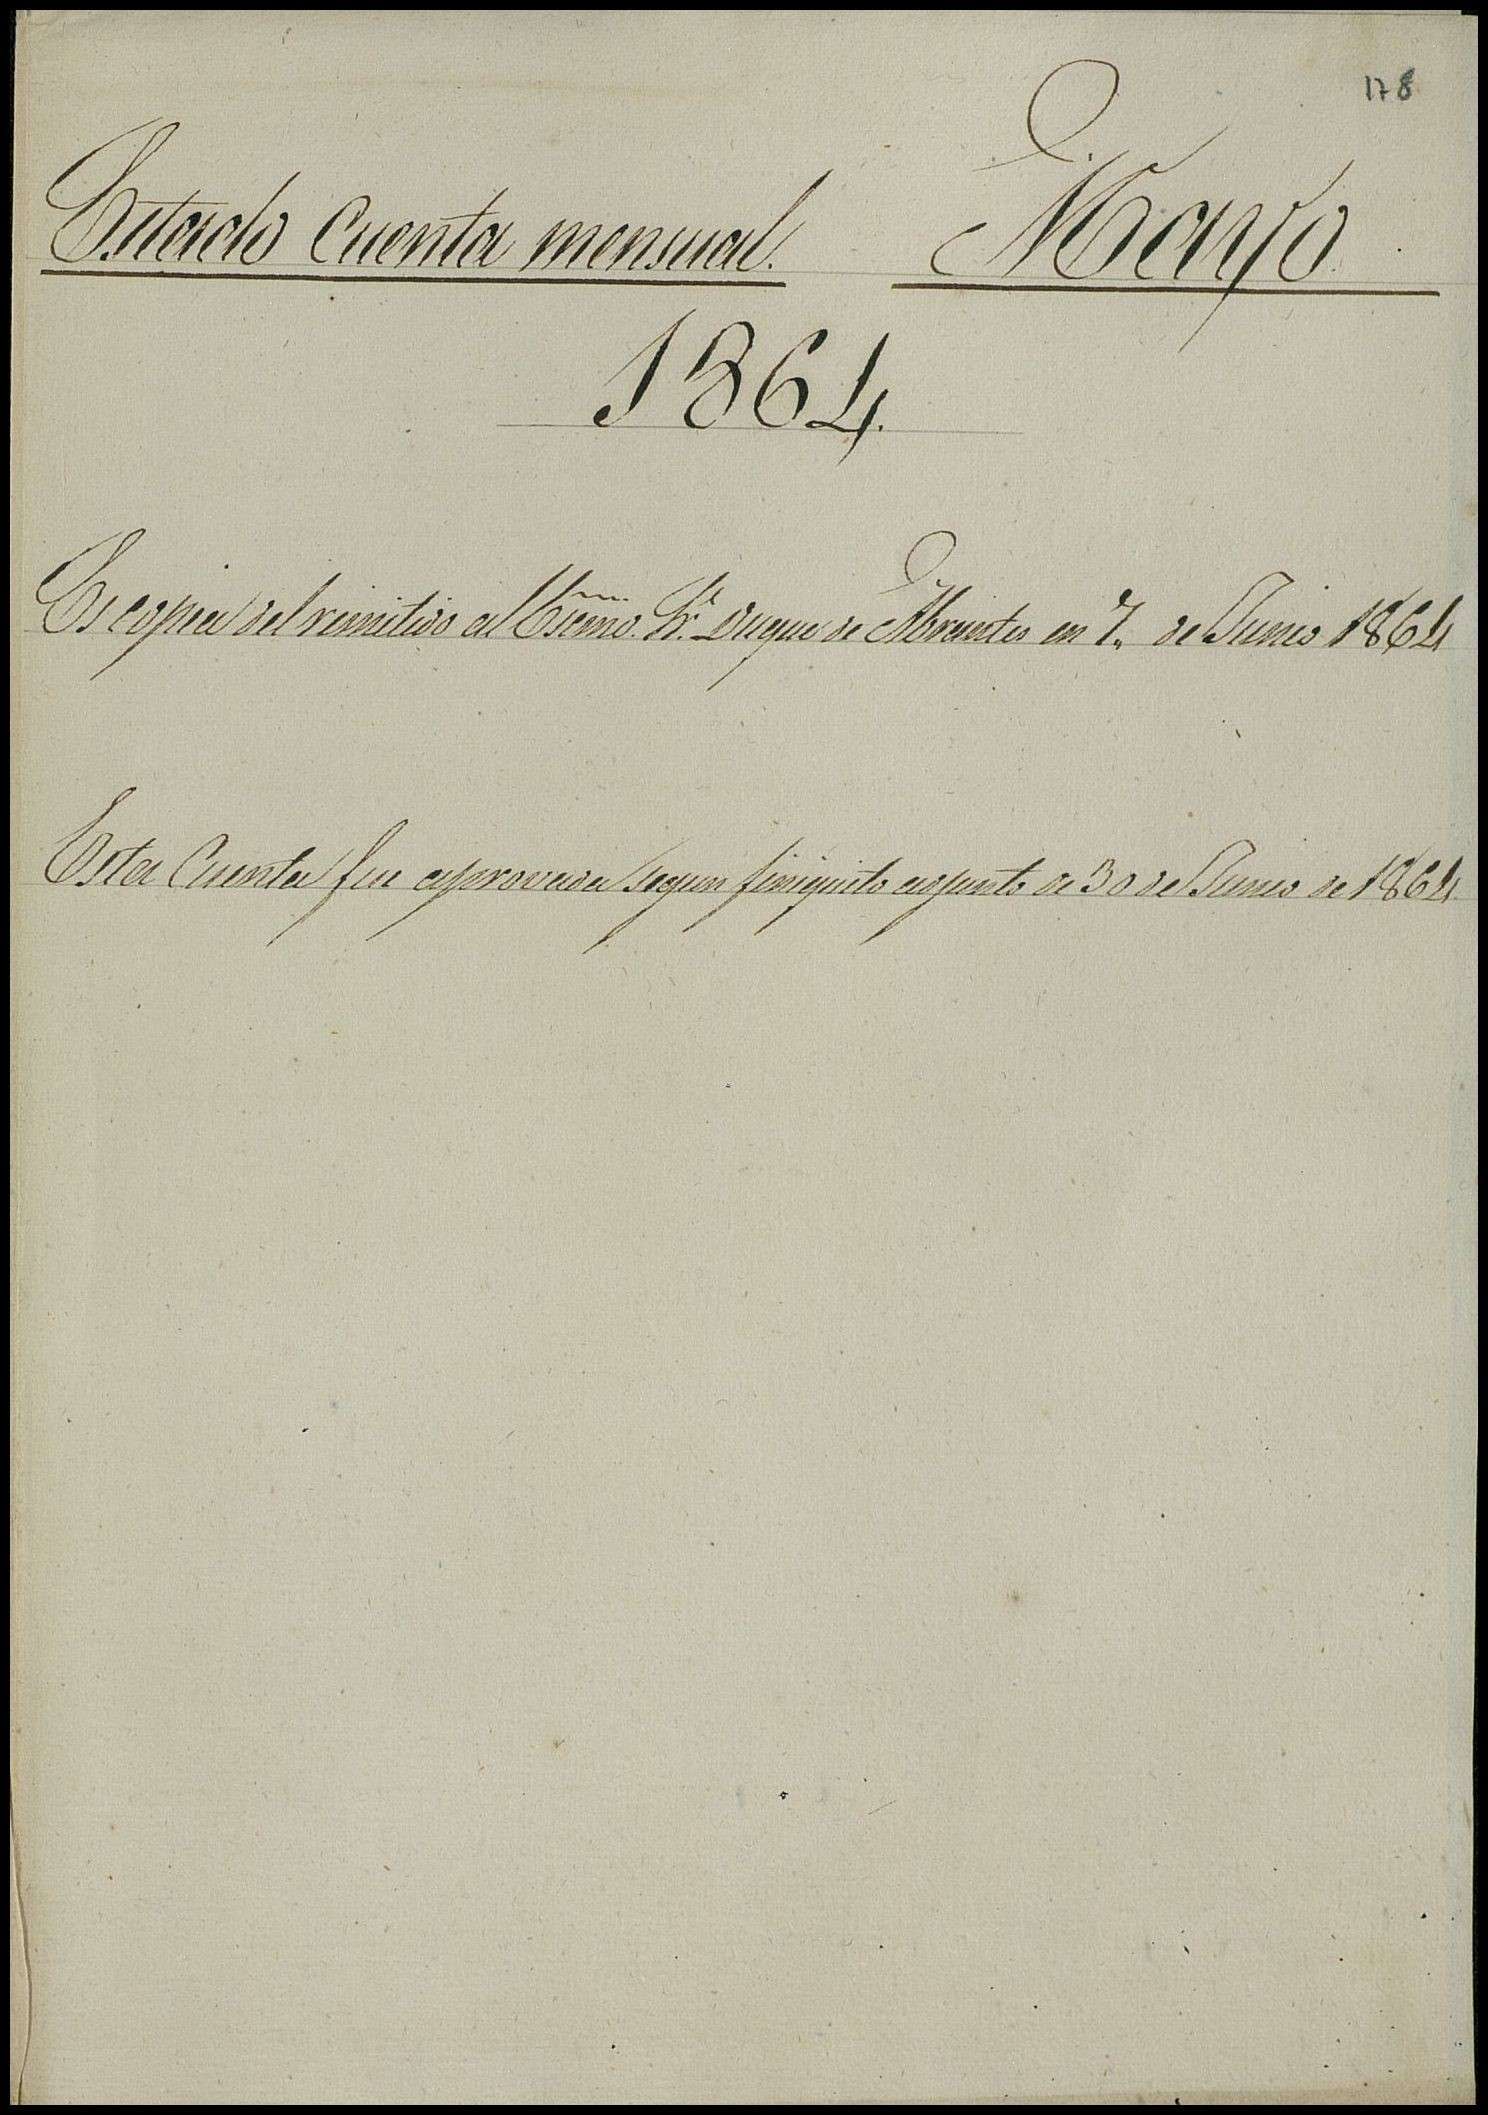 178
Estado Cuenta mensual. Mayo
1864.
Es copia del remitido al Escmo. Sr. Duque de Abrantes en 7,, de Junio 1864
Esta Cuenta fue aprovada segun finiquito adjunto de 30 de Junio de 1864.